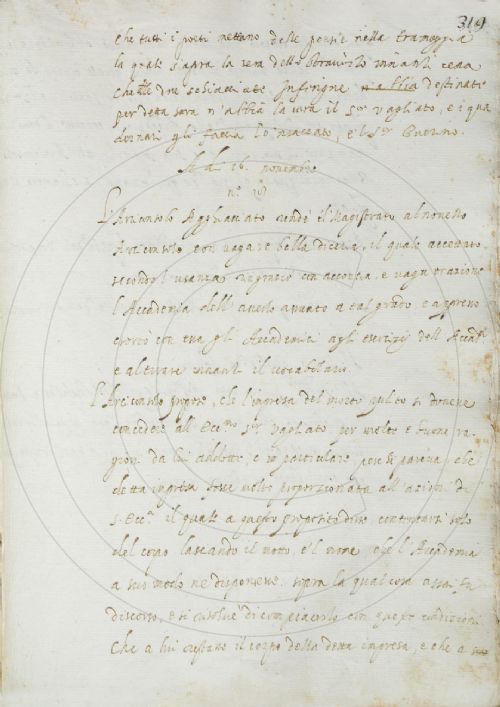 319
che tutti i poeti mettano delle poesie nella tramoggia
la quale s'apra la sera dello stravizzo innanti cena
che sieno schiacciate. Infarigne destinate
per detta sera n'abbia la cura il S.r Vagliato, e i qua
dornari gli faccia lo 'nsaccato, e 'l S.r
A dì 26 novembre
n.º
L'Arciconsolo Agghiacciato rendé il Magistrato al novello
Arciconsolo con vaga e bella diceria, il quale accettato
secondo l'usanza ringraziò con acconcia, e vaga orazione
l'Accademia dell'averlo alzato a tal grado, e appresso
esortò con essa gli Accademici agli esercizi dell'Accad.a
e a tirare innanti il vocabolario.
L'Arciconsolo propose, che l'impresa del morto gli si dovesse
concedere all'Ecc.mo S.r Vagliato per molte e buone ra
gioni da lui addotte, e in particulare perché pareva, che
detta impresa fosse molto proporzionata all'azioni di
S. Ecc.a il quale a questo proposito disse contentarsi solo
del corpo lasciando il motto, e 'l nome, che l'Accademia
a suo modo ne disponesse. sopra la qual cosa assai fu
discorso, e si risolvé di compiacerlo con queste condizioni
Che a lui restasse il corpo della detta impresa, e che a suo